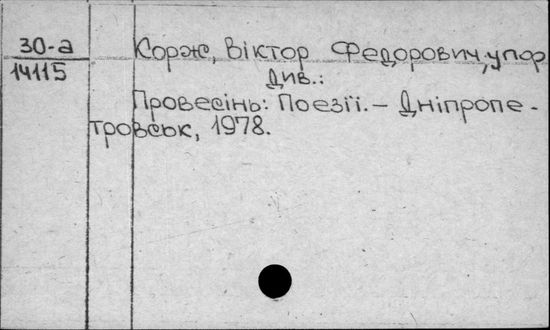 30-а
14115
Корж, Віктор Федорович, упор
Див.:
Провесінь: Поезії. – Дніпропе-
тровськ, 1978.